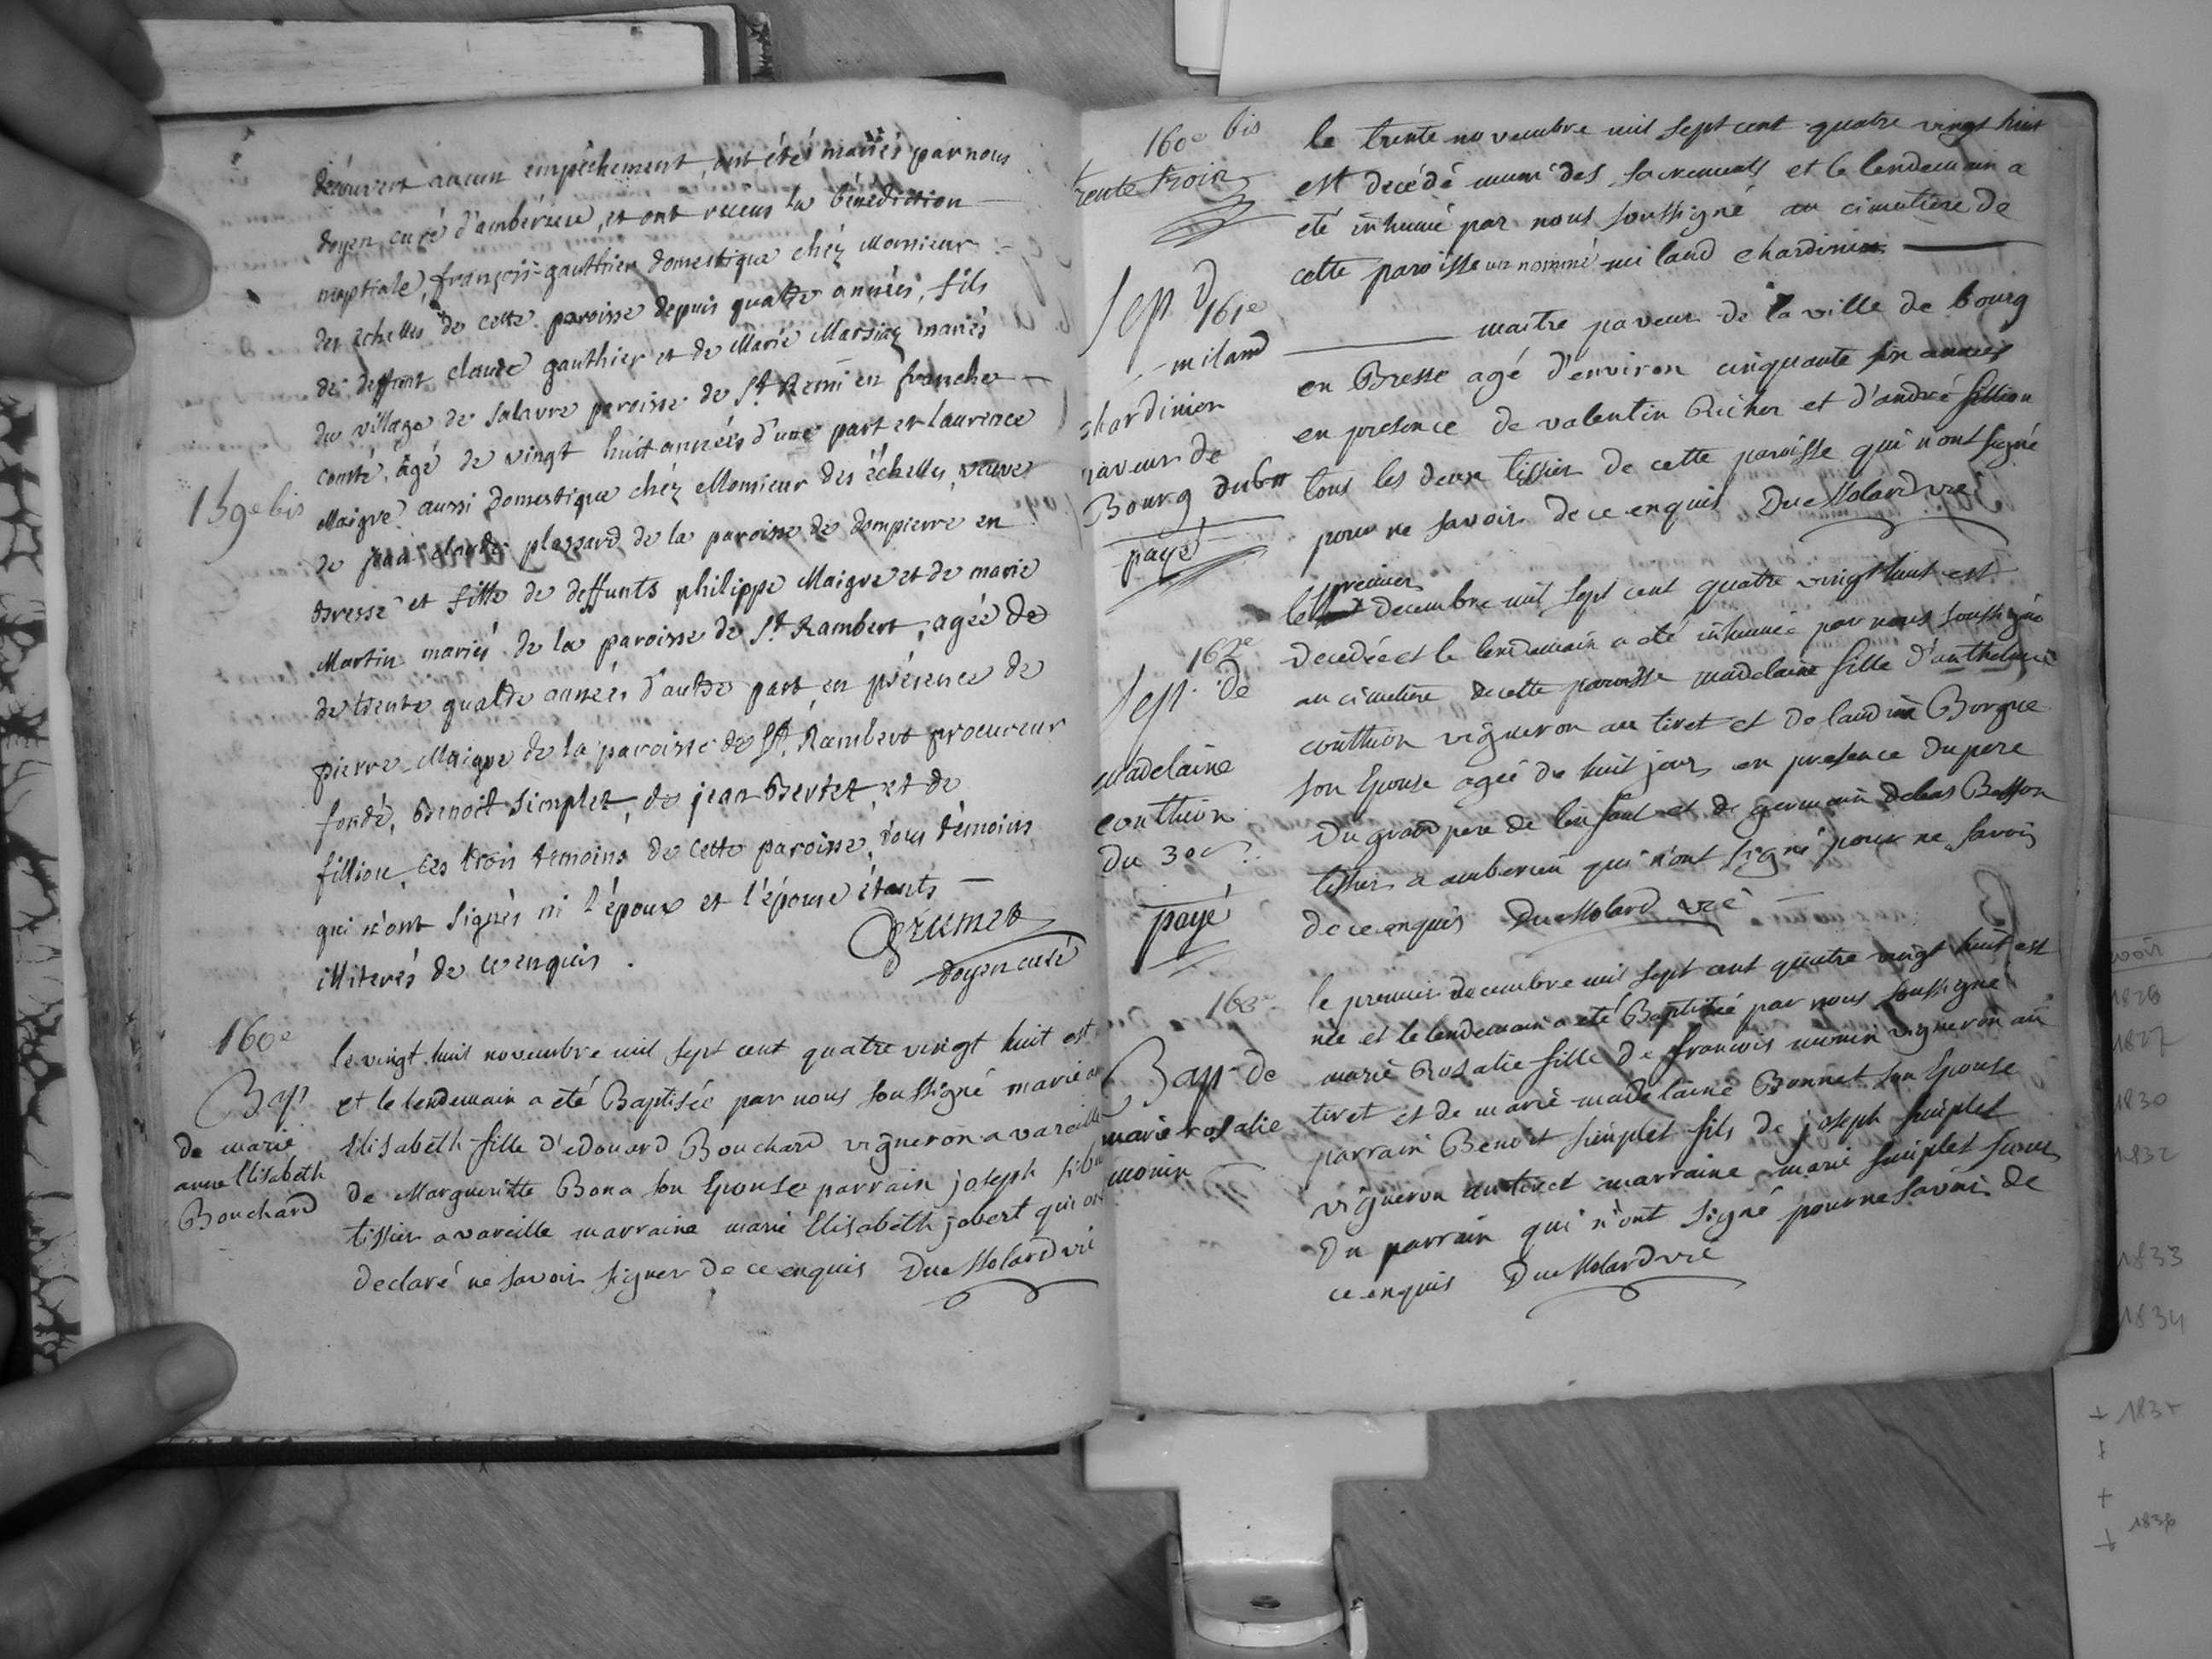 découvert aucun empêchement, ont été mariés par nous
doyen, curé d'ambérieu, et ont recus la bénédiction
nuptiale, françois gauthier domestique chéz Monsieur
des échelles de cette paroisse depuis quatre années, fils
de deffunt claude gauthier et de Marie mariés
du village de Salavre paroisse de St Remi en franche
comté, âgé de vingt huit années d'une part et laurence
159e bis
Maigre aussi domestique chéz Monsieur des échelles, veuve
de jean claude plassard de la paroisse de dompierre en
Bresse et fille de deffunts philippe Maigre et de marie
Martin mariés de la paroisse de St Rambert, agée de
de trente quatre années d'autre part en présence de
pierre Maigre de la paroisse de St Rambert procureur
fondé, Benoit Simplet, de jean Bertet et de
fillion, ces trois temoins de cette paroisse, tous témoins
qui n'ont signés ni l'époux et l'épouse étants
illiterés de ce enquis.
Grumet
doyen curé
160e
Bap
de marie
anne Elisabeth
Bouchard
le vingt huit novembre mil sept cent quatre vingt huit est
et le lendemain a été Baptisée par nous soussigné marie
Elisabeth fille d'edouard Bouchard vigneron a vareille
de Margueritte Bona son Epouse parrain joseph
tissier a vareille marraine marie Elisabeth jobert qui ont
declaré ne savoir signer de ce enquis Du Molard vic
160e bis
trente trois
le trente novembre mil sept cent quatre vingt huit
est decédé muni des sacrements et le lendemain a
eté inhumé par nous soussigné au cimetiere de
cette paroisse un nommé miland chardinier
Sep d 161e
miland
chardinier
paveur de
Bourg
payé
maitre paveur de la ville de bourg
en Bresse agé d'environ cinquante six années
en presence de valentin Richer et d'andré fillion
tous les deux tissier de cette paroisse qui n'ont signé
pour ne savoir de ce enquis Du Molard vic
162e
Sep. de
madelaine
couthion
du 3e
payé
premier
le decembre mil sept cent quatre vingt huit est
decedée et le lendemain a eté inhumée par nous soussigné
au cimetiere de cette paroisse madelaine fille d'anthelme
couthion vigneron au tiret et de laudine Borgue
son Epouse agée de huit jours en presence du pere
du grand pere de l'enfant et de germain debas Besson
tissier a amberieu qui n'ont signé pour ne savoir
de ce enquis Du Molard vic
163e
Bap de
marie rosalie
monin
le premier decembre mil sept cent quatre vingt huit est
née et le lendemain a eté Baptisée par nous soussigné
marie Rosalie fille de francois monin vigneron au
tiret et de marie madelaine Bonnet son Epouse
parrain Benoit simplet fils de joseph simplet
vigneron au tiret marraine marie simplet soeur
du parrain qui n'ont signé pour ne savoir de
ce enquis Du Molard vic
voir
1826
1827
1830
1832
1833
1834
+ 183
+
1836